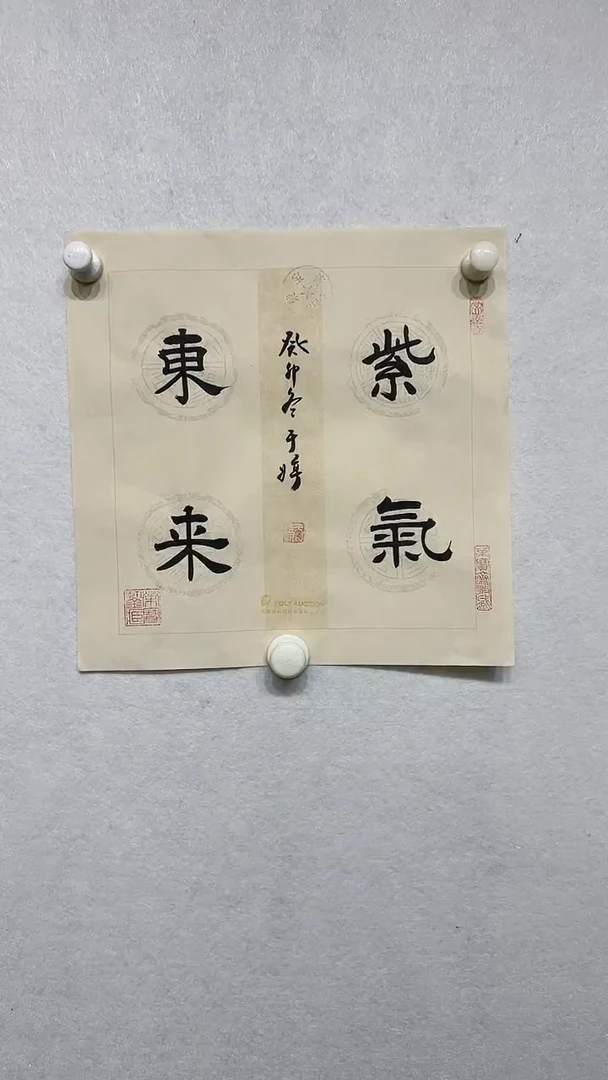 紫氣
東来
癸卯冬于婷
POLY AUCTION